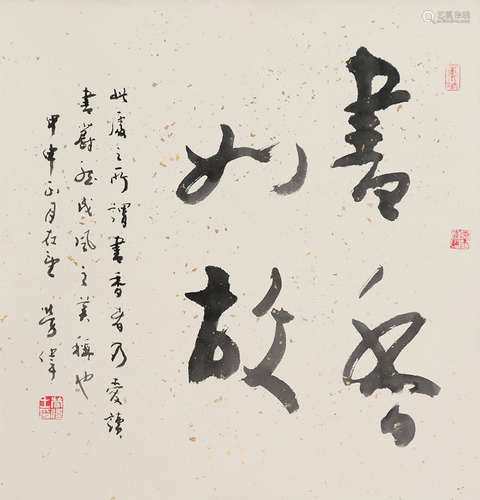 書香
如故
此處之所謂書香者乃愛讀
書蔚然成風之美稱也
甲申正月在望